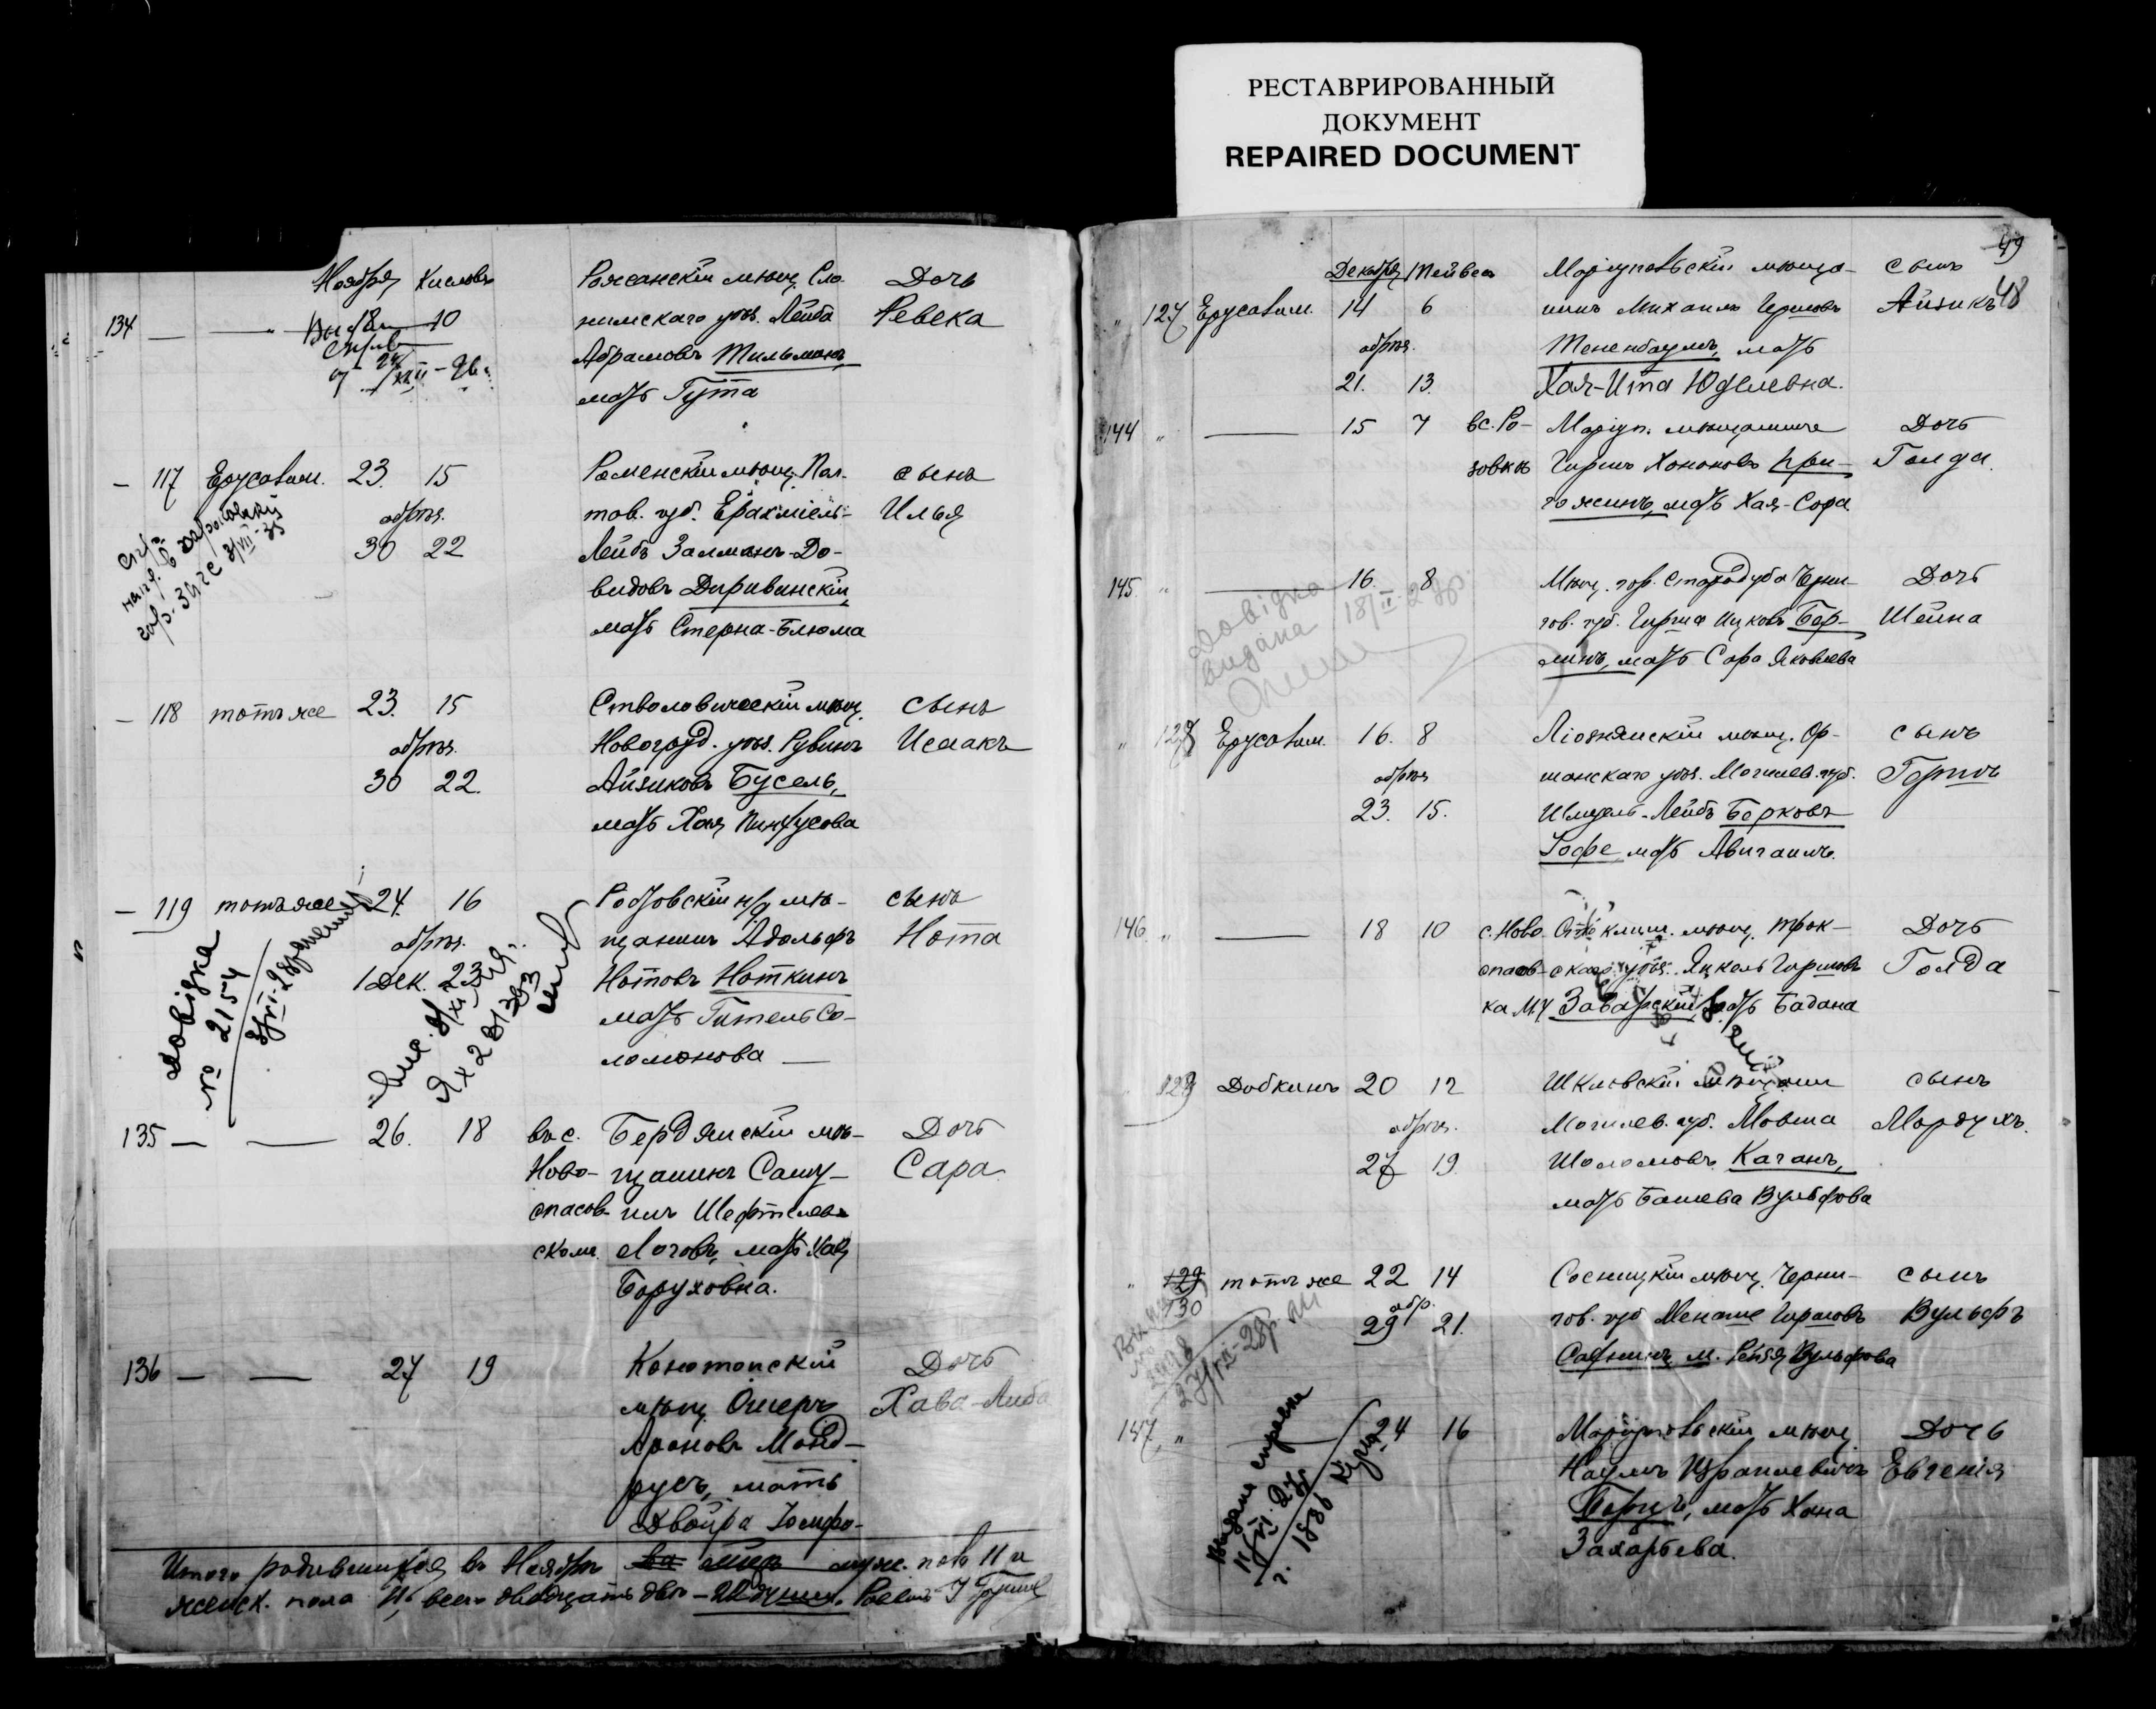 РЕСТАВРИРОВАННЫЙ
ДОКУМЕНТ
REPAIRED DOCUMENT
Ноября Кислевъ
134 — — 18 10
Рожанскій мѣщ. Сло-
нимскаго уѣз. Лейба
Абрамовъ Тильманъ,
мать Гута
Дочь
Ревека
— 117 Ерусалим. 23. 15
обрѣз.
30 22
Роменскій мѣщ. Пол-
тов. губ. Ерахміель-
Лейбъ Залманъ-До-
видовъ Диривинскій,
мать Стерна-Блюма
сынъ
Илья
— 118 тотъ же 23. 15
обрѣз.
30 22.
Столовическій мѣщ.
Новогруд. уѣз. Рувинъ
Айзиковъ Бусель,
мать Хая Пинхусова
сынъ
Исаакъ
— 119 тотъ же 24. 16
обрѣз.
1 Дек. 23
Ростовскій н/д мѣ-
щанинъ Адольфъ
Нотовъ Ноткинъ
мать Гительсо-
ломонова —
сынъ
Нота
Довідка
№ 2154
135 — — 26. 18 въ с.
Ново-
спасов-
ском.
Бердянскій мѣ-
щанинъ Саму-
илъ Шефтелевъ
Логовъ, мать Хая
Боруховна.
Дочь
Сара
136 — — 27 19
Конотопскій
мѣщ. Ошеръ
Ароновъ Манд-
русъ, мать
Двойра
Дочь
Хава-Люба
Итого родившихся въ Ноябрѣ муж. пола 11 и
женск. пола 11, всего двадцать два
49
48
Декабря Тейвеса
" 127 Ерусалим. 14 6
обрѣз.
21. 13.
Маріупольскій мѣща-
нинъ Михаилъ Гершовъ
Тененбаумъ, мать
Хая-Ита Юделевна.
сынъ
Айзикъ
144 " — 15 7 въ с. Ро-
зовкѣ
Маріуп. мѣщанинъ
Гиршъ Хононовъ При-
гожинъ, мать Хая-Сора
Дочь
Голда.
145. " — 16. 8
Мѣщ. гор. Стародуба Черни-
гов. губ. Гирша Ицковъ Бер-
линъ, мать Сора Яковлева
Дочь
Шейна
Довідка
видана
" 128 Ерусалим. 16. 8
обрѣз
23. 15.
Ліознянскій мѣщ. Ор-
шанскаго уѣз. Могилев. губ.
Шмуель-Лейбъ Берковъ
Іоффе мать Авигаилъ.
сынъ
Гершъ
146 " — 18 10 с. Ново-
спасов-
ка М.У.
мѣщ. Трок-
скаго уѣз. Янкель Гиршовъ
мать Бадана
Дочь
Голда
129 Добкинъ 20 12
обрѣз.
27 19
Шкловскій мѣщанин
Могилев. губ. Мовша
Шоломовъ Каганъ,
мать Башева Вульфова
сынъ
Мордухъ.
" 129 тотъ же 22 14
130
обр.
29 21.
Сосницкій мѣщ. Черни-
гов. губ Менаше Гиршовъ
м. Рейзя Вульфова
сынъ
Вульфъ
147 " — 24 16
Маріупольскій мѣщ.
Наумъ Израилевичъ
мать Хана
Захарьева.
Дочь
Евгенія